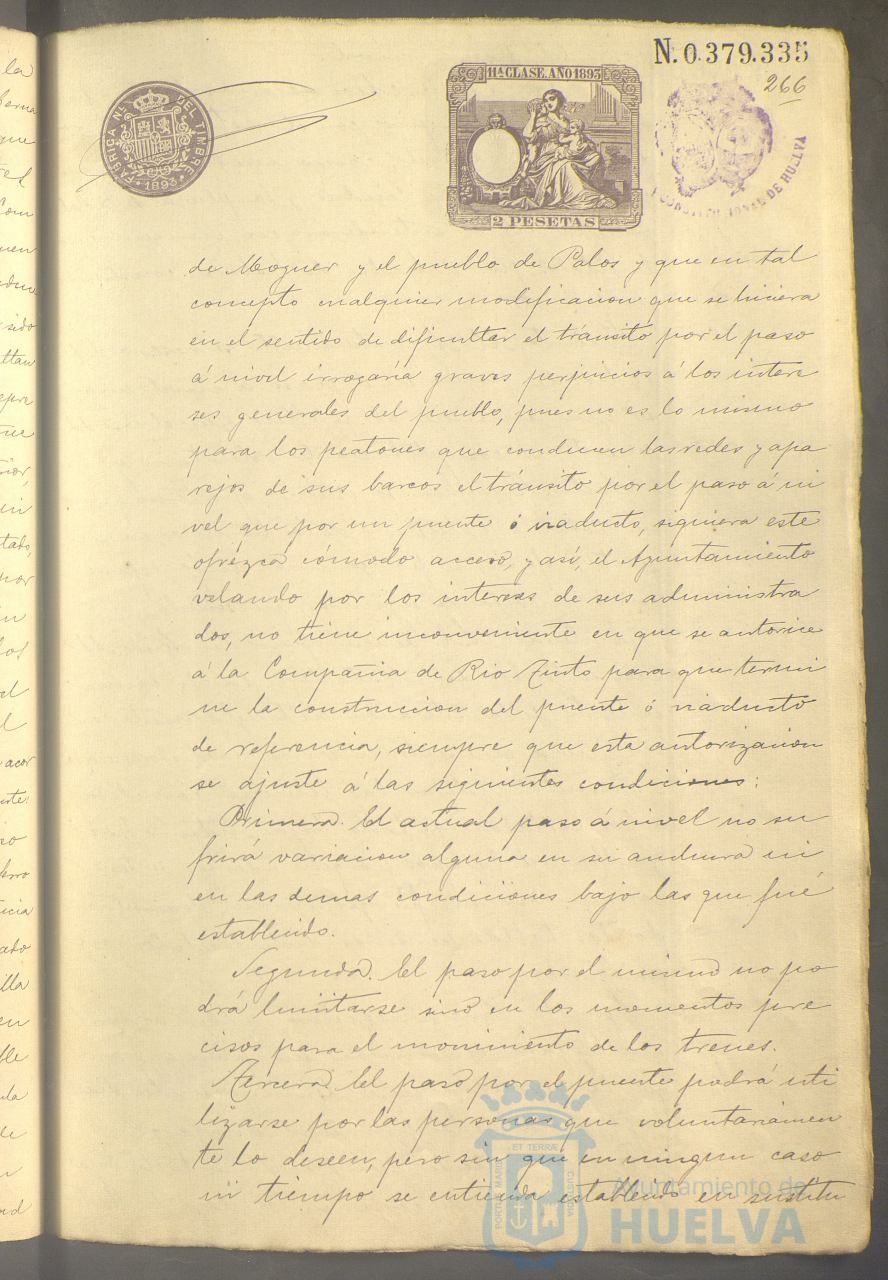 N. 0.379.335
266
11ª CLASE. AÑO 1893
FÁBRICA NAL. DEL TIMBRE
1893
2 PESETAS
CONSTITUCIONAL DE HUELVA
de Moguer y el pueblo de Palos y que en tal
concepto cualquier modificacion que se hiciera
en el sentido de dificultar el tránsito por el paso
á nivel irrogaría graves perjuicios á los intere
ses generales del pueblo, pues no es lo mismo
para los peatones que conducen las redes y apa
rejos de sus barcos el tránsito por el paso á ni
vel que por un puente ó viaducto, siquiera este
ofrezca cómodo acceso, y así, el Ayuntamiento
velando por los intereses de sus administra
dos, no tiene inconveniente en que se autorice
á la Compañia de Rio Tinto para que termi
ne la construccion del puente ó viaducto
de referencia, siempre que esta autorizacion
se ajuste á las siguientes condiciones:
Primera. El actual paso á nivel no su
frirá variacion alguna en su anchura ni
en las demas condiciones bajo las que fué
establecido.
Segunda. El paso por el mismo no po
drá limitarse sino en los momentos pre
cisos para el movimiento de los trenes.
Tercera. El paso por el puente podrá uti
lizarse por las personas que voluntariamen
te lo deseen, pero sin que en ningun caso
ni tiempo se entienda establecido en sustitu
PORTUS MARIS ET TERRÆ CUSTODIA
Ayuntamiento de
HUELVA